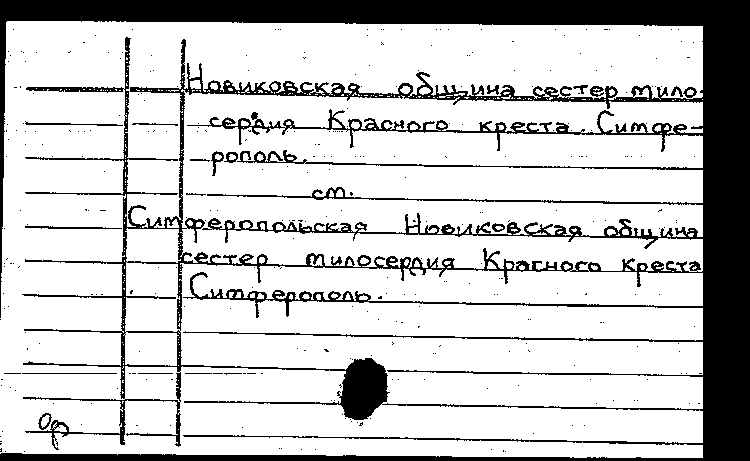 Новиковская община сестер мило-
сердия Красного креста. Симфе-
рополь.
см.
Симферопольская Новиковская община
сестер милосердия Красного креста
Симферополь.